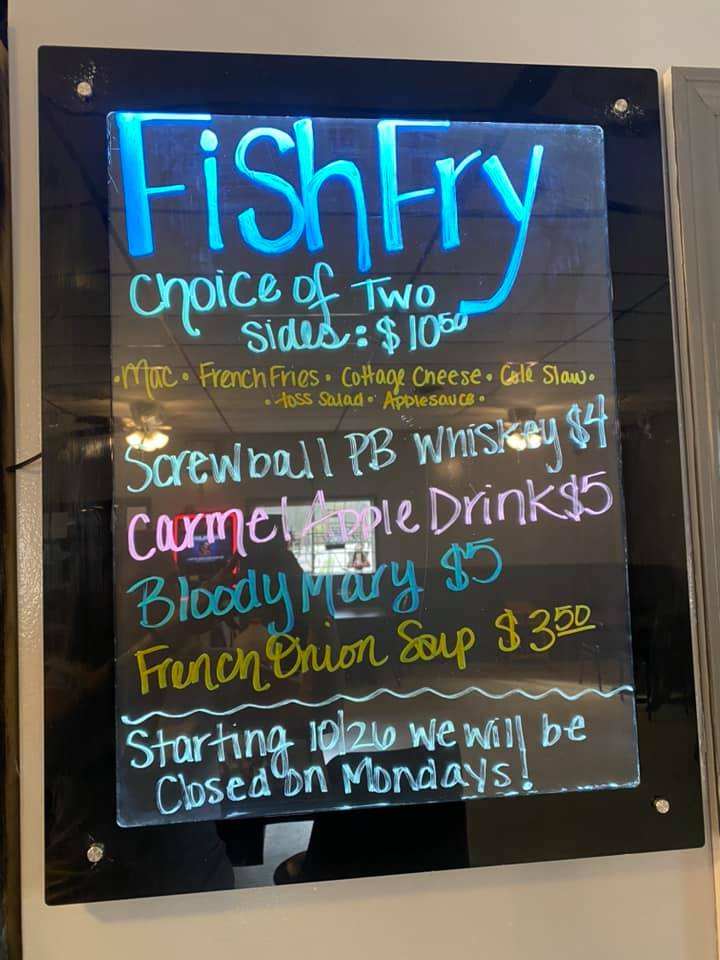 Fish Fry
Choice of Two
Sides: $10 50
• Mac • French Fries • Cottage Cheese • Cole Slaw •
• Toss Salad • Applesauce •
Screwball PB Whiskey $4
Carmel Apple Drink $5
Bloody Mary $5
French Onion Soup $3 50
Starting 10/26 we will be
Closed on Mondays!